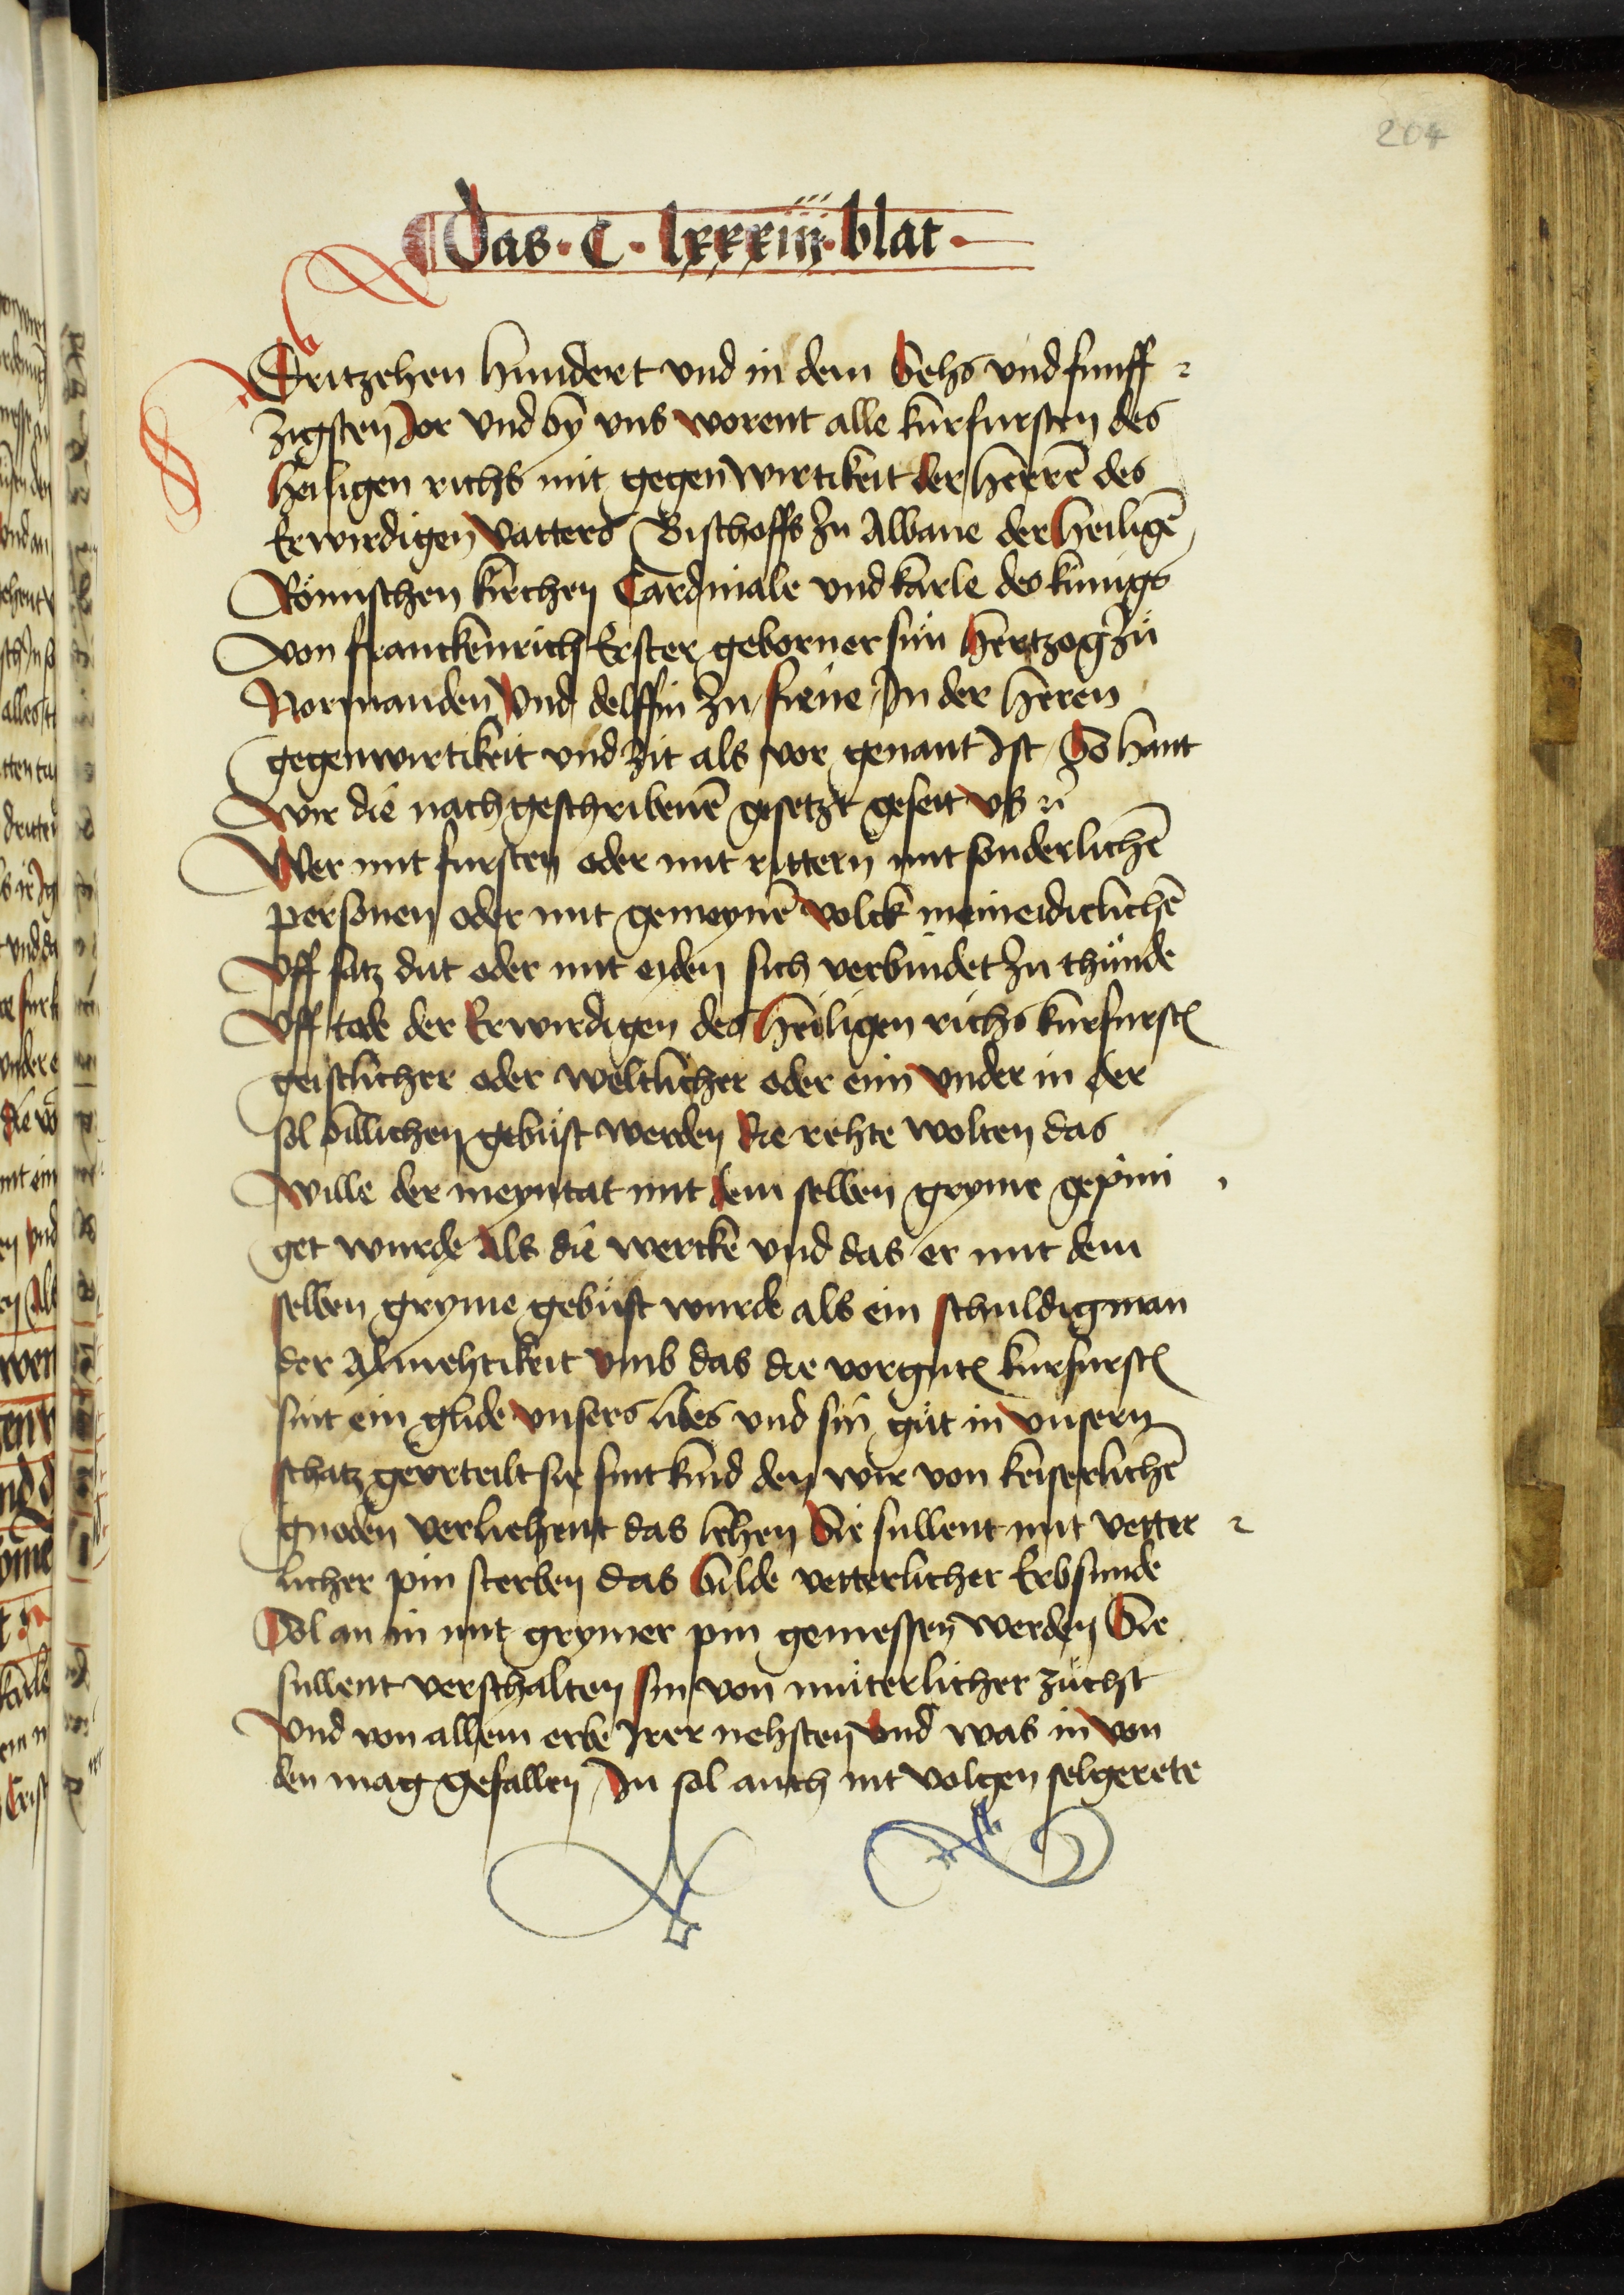 204
Das · C · lxxxiii · blat ·
Dritzehen hundert vnd in dem Sehs vnd funff
zigsten Jor vnd bÿ vns worent alle kurfursten des
heiligen richs mit gegenwirtikeit der herrē des
Erwirdigen vatters Bischoffs zu Albane der heiligē
Römischen kirchen Cardinale vnd karle des kunigs
von franckenrich Erster geborner sün hertzog zü
Normanden vnd delffin zu fiene In der heren
gegenwirtikeit vnd zit als vor genant Ist So hant
wir die nach geschribenē gesetzt geseit vß
Wer mit fursten oder mit rittern mit sonderlichē
personen oder mit gemeynē volck meineidiclichē
vff satz dut oder mit eyden sich verbindet zu thünde
vff tode der Erwirdigen des heiligen richs kurfurstē
geistlicher oder weltlicher oder eim vnder in der
sol billichen gebüst werden Die rehte wolten das
wille der meyntat mit dem selben gryme gepini
get wurde als die wercke vnd das er mit dem
selben gryme gebüst wurde als ein schuldig man
der Almehtikeit vmb das die vorgntē kurfurstē
sint ein glide vnsers libes vnd sin güt in vnsern
schatz gevrteilt sie sint kind den wir von keiserlichē
gnoden verliehent das lehen Sie sullent mit vetter
licher pin sterben das bilde vetterlicher Erbsunde
Sol an in mit grymer pin gemessen werden Sie
sullent verschalten sin von müterlicher zucht
vnd von allem erbe Irer nehsten vnd was in von
den mag gefallen In sol auch nit volgen selgerete